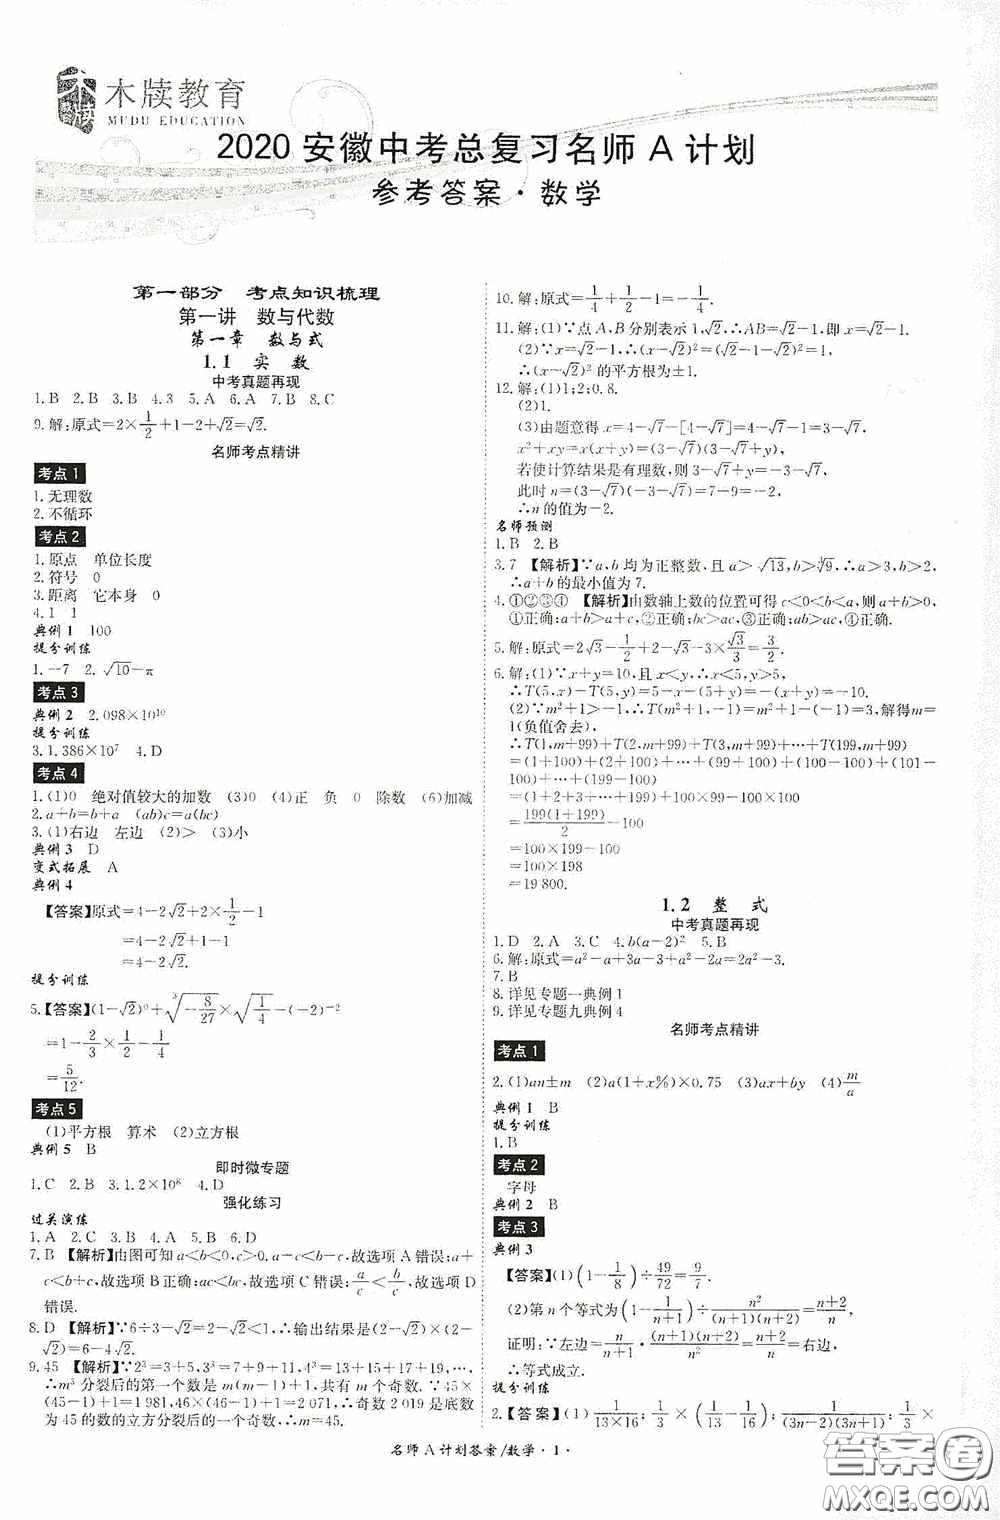 木牍教育
MUDU EDUCATION
2020安徽中考总复习名师A计划
参考答案·数学
第一部分 考点知识梳理
第一讲 数与代数
第一章 数与式
1.1 实数
中考真题再现
1.B 2.B 3.B 4.3 5.A 6.A 7.B 8.C
9.解:原式=2×1/2+1-2+√2=√2.
名师考点精讲
考点1
1.无理数
2.不循环
考点2
1.原点 单位长度
2.符号 0
3.距离 它本身 0
4.1 1
典例1 100
提分训练
1.-7 2.√10-π
考点3
典例2 2.098×10¹⁰
提分训练
3.1.386×10⁷ 4.D
考点4
1.(1)0 绝对值较大的加数 (3)0 (4)正 负 0 除数 (6)加减
2.a+b=b+a (ab)c=a(bc)
3.(1)右边 左边 (2)> (3)小
典例3 D
变式拓展 A
典例4
【答案】原式=4-2√2+2×1/2-1
=4-2√2+1-1
=4-2√2.
提分训练
5.【答案】(1-√2)⁰+∛(-8/27)×√(1/4)-(-2)⁻²
=1-2/3×1/2-1/4
=5/12.
考点5
(1)平方根 算术 (2)立方根
典例5 B
即时微专题
1.C 2.B 3.1.2×10⁸ 4.D
强化练习
过关演练
1.A 2.C 3.B 4.A 5.B 6.D
7.B 【解析】由图可知a<b<0,c>0.a-c<b-c,故选项A错误;a+
c<b+c,故选项B正确;ac<bc,故选项C错误;a/c<b/c,故选项D
错误.
8.D 【解析】∵6÷3-√2=2-√2<1,∴输出结果是(2-√2)×(2-
√2)²=6-4√2.
9.45 【解析】∵2³=3+5,3³=7+9+11,4³=13+15+17+19,…,
∴m³分裂后的第一个数是m(m-1)+1,共有m个奇数.∵45×
(45-1)+1=1981,46×(46-1)+1=2071,∴奇数2019是底数
为45的数的立方分裂后的一个奇数,∴m=45.
10.解:原式=1/4+1/2-1=-1/4.
11.解:(1)∵点A,B分别表示1,√2,∴AB=√2-1,即x=√2-1.
(2)∵x=√2-1,∴(x-√2)²=(√2-1-√2)²=1,
∴(x-√2)²的平方根为±1.
12.解:(1)1;2;0.8.
(2)1.
(3)由题意得x=4-√7-[4-√7]=4-√7-1=3-√7,
x²+xy=x(x+y)=(3-√7)(3-√7+y),
若使计算结果是有理数,则3-√7+y=-3-√7,
此时n=(3-√7)(-3-√7)=7-9=-2,
∴n的值为-2.
名师预测
1.B 2.B
3.7 【解析】∵a,b均为正整数,且a>√13,b>∛9,∴a>3,b>2,
∴a+b的最小值为7.
4.①②③④ 【解析】由数轴上数的位置可得c<0<b<a,则a+b>0,
①正确;a+b>a+c,②正确;bc>ac,③正确;ab>ac,④正确.
5.解:原式=2√3-1/2+2-√3-3×√3/3=3/2.
6.解:(1)∵x+y=10,且x<y,∴x<5,y>5,
∴T(5,x)-T(5,y)=5-x-(5+y)=-(x+y)=-10.
(2)∵m²+1>-1,∴T(m²+1,-1)=m²+1-(-1)=3,解得m=
1(负值舍去),
∴T(1,m+99)+T(2,m+99)+T(3,m+99)+…+T(199,m+99)
=(1+100)+(2+100)+…+(100+100)+(101-100)
+…+(199-100)
=(1+2+3+…+199)+100×100-100×99
=199(1+199)/2+100
=100×199+100
=100×198
=19800.
1.2 整式
中考真题再现
1.D 2.A 3.C 4.b(a-2)² 5.B
6.解:原式=a²-a+3a-3+a²-4a=2a²-2a-3.
7.B
8.详见专题一典例1
9.详见专题九典例4
名师考点精讲
考点1
2.(1)an±m (2)a(1+x%)×0.75 (3)ax+by (4)m/a
典例1 B
提分训练
1.B
考点2
字母
典例2 B
考点3
典例3
【答案】(1)(1-1/8)÷49/72=9/7.
(2)第n个等式为(1-1/(n+1))÷n²/((n+1)(n+2))=(n+2)/n,
证明:∵左边=n/(n+1)·(n+1)(n+2)/n²=(n+2)/n=右边,
∴等式成立.
提分训练
2.【答案】(1)1/(13×16);1/3×(1/13-1/16);1/((3n-2)(3n+1));1/3×
名师A计划答案/数学·1·
答案圈
MXQE.COM